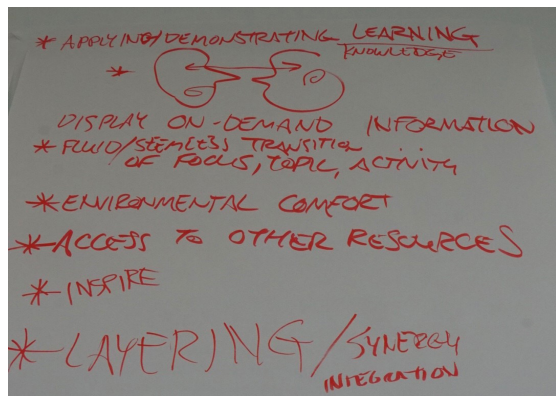 * APPLYING/DEMONSTRATING LEARNING
KNOWLEDGE
*
DISPLAY ON-DEMAND INFORMATION
* FLUID/SEEMLESS TRANSITION
OF FOCUS, TOPIC, ACTIVITY
* ENVIRONMENTAL COMFORT
* ACCESS TO OTHER RESOURCES
* INSPIRE
* LAYERING/SYNERGY
INTEGRATION